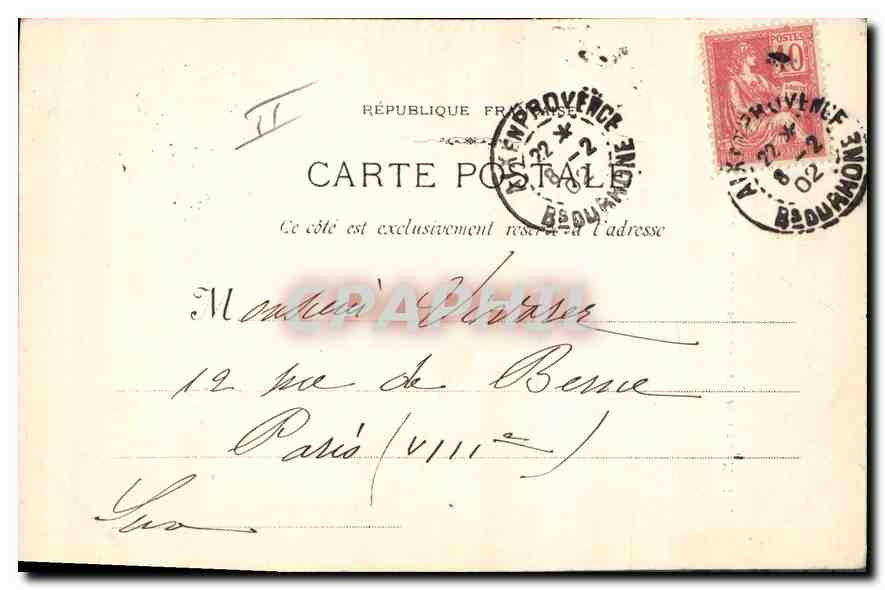 II
RÉPUBLIQUE FRANÇAISE
CARTE POSTALE
Ce côté est exclusivement réservé à l'adresse
POSTES
10
AIX EN PROVENCE
22 *
8 -2
02
Bs DU RHONE
AIX EN PROVENCE
22 *
8 -2
02
Bs DU RHONE
Monsieur
CPAPHIL
12 rue de Berne
Paris (VIIIe)